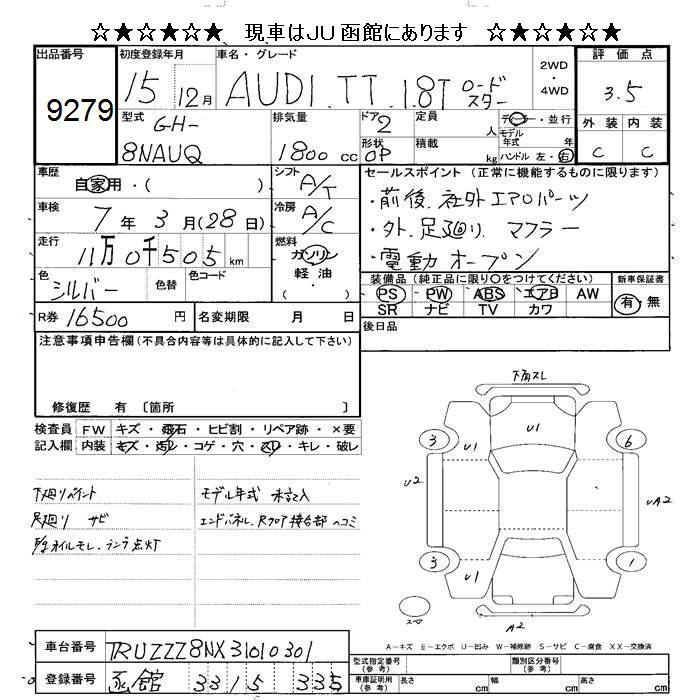 ☆★☆★☆★☆ 現車はJU函館にあります ☆★☆★☆★☆
出品番号 9279
初度登録年月 15 12月
車名・グレード AUDI. TT. 1.8T ロードスター
2WD・4WD
評価点 3.5
型式 GH-8NAUQ
排気量 1800 cc
ドア 2
形状 OP
定員 人
積載 kg
ディーラー・並行
モデル年式 年
ハンドル 左・右
外装 内装
C C
車歴 自家用・( )
シフト A/T
車検 7年 3月(28日)
冷房 A/C
走行 11万0千505km
燃料 ガソリン 軽油 ( )
色 シルバー 色替 色コード
R券 16500円 名変期限 月 日
セールスポイント(正常に機能するものに限ります)
・前後.社外エアロパーツ
・外.足廻り.マフラー
・電動オープン
装備品(純正品に限り○をつけてください)
PS PW ABS エアB AW
SR ナビ TV カワ
新車保証書 有・無
後日品
注意事項申告欄(不具合内容等は具体的に記入して下さい)
修復歴 有〔箇所 〕
検査員記入欄
FW キズ・飛石・ヒビ割・リペア跡・×要
内装 キズ・汚レ・コゲ・穴・スレ・キレ・破レ
下廻りペイント
足廻り サビ
オイルモレ.ランプ点灯
モデル年式 未記入
エンドパネル.Rフロア接合部 ヘコミ
下角スレ
3 U1 U1 6
U2 UA2
3 U1 1
スペア A2
A-キズ E-エクボ U-凹み W-補修跡 S-サビ C-腐食 XX-交換済
車台番号 TRUZZZ8NX31010301
登録番号 函館 331 5 335
型式指定番号(参考) 類別区分番号(参考)
車庫証明用(参考) 長さ cm 幅 cm 高さ cm